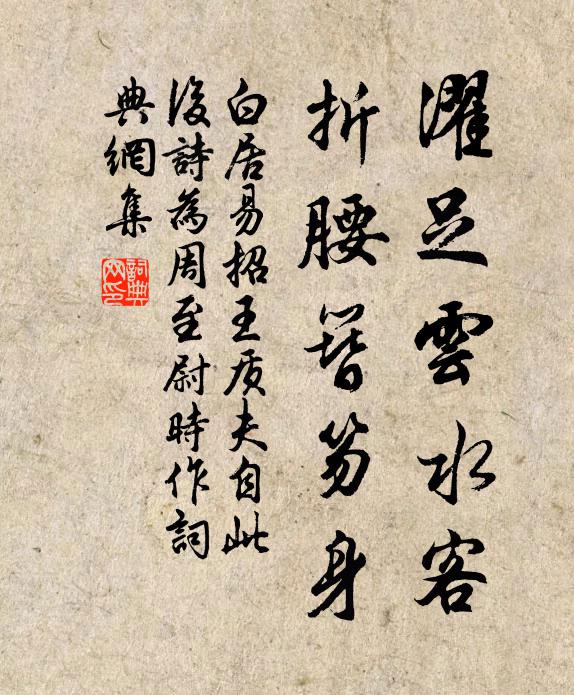 濯足雲水客
折腰簪笏身
白居易招王质夫自此
後詩為周至尉時作詞
典網集
詞典網印